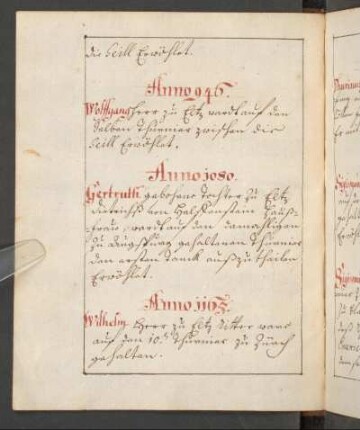 die Seill Erwöhlet.
Anno 946.
Wolffgang Herr zu Eltz wardt auf den
Selben Thurnier zwischen die
Seill Erwöhlet.
Anno 1080.
Gertruth gebohrne Tochter zu Eltz
Dietrichs von Hauß-
frau, wardt auf den damahligen
zu Augspurg gehaltenen Thurnier
den ersten Danck auß zu theilen
Erwöhlet.
Anno 1165.
Wilhelm Herr zu Eltz Ritter ward
auf den 10.ten Thurnier zu Zürch
gehalten.